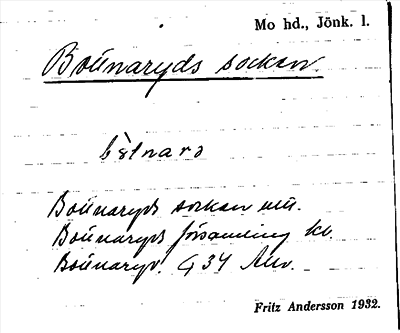 Mo hd., Jönk. l.
Bottnaryds socken.
bòtnarə
Bottnaryds socken utt.
Bottnaryds församling kl.
Bottnaryd. G 34 Anv.
Fritz Andersson 1932.